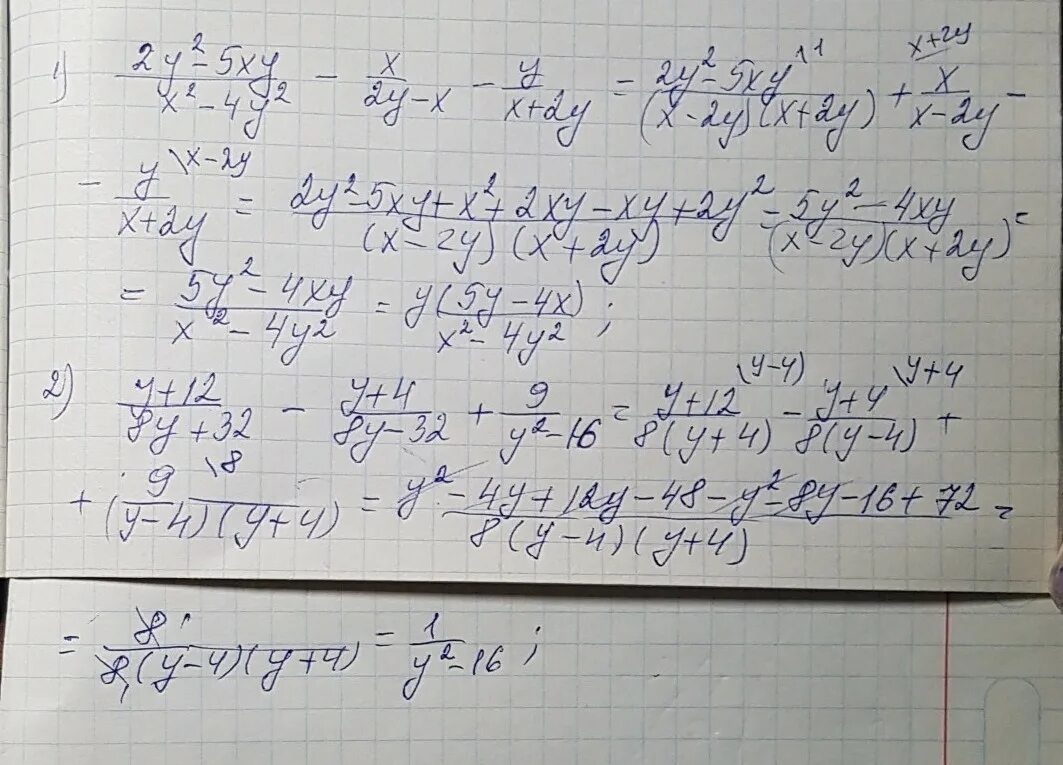 1) (2y²-5xy)/(x²-4y²) - x/(2y-x) - y/(x+2y) = (2y²-5xy \1)/((x-2y)(x+2y)) + (x \x+2y)/(x-2y) -
- (y \x-2y)/(x+2y) = (2y²-5xy+x²+2xy-xy+2y²)/((x-2y)(x+2y)) = (5y²-4xy)/((x-2y)(x+2y)) =
= (5y²-4xy)/(x²-4y²) = y(5y-4x)/(x²-4y²);
2) (y+12)/(8y+32) - (y+4)/(8y-32) + 9/(y²-16) = (y+12 \(y-4))/(8(y+4)) - (y+4 \y+4)/(8(y-4)) +
+ (9 \8)/((y-4)(y+4)) = (y²-4y+12y-48-y²-8y-16+72)/(8(y-4)(y+4)) =
= 8/(8(y-4)(y+4)) = 1/(y²-16);